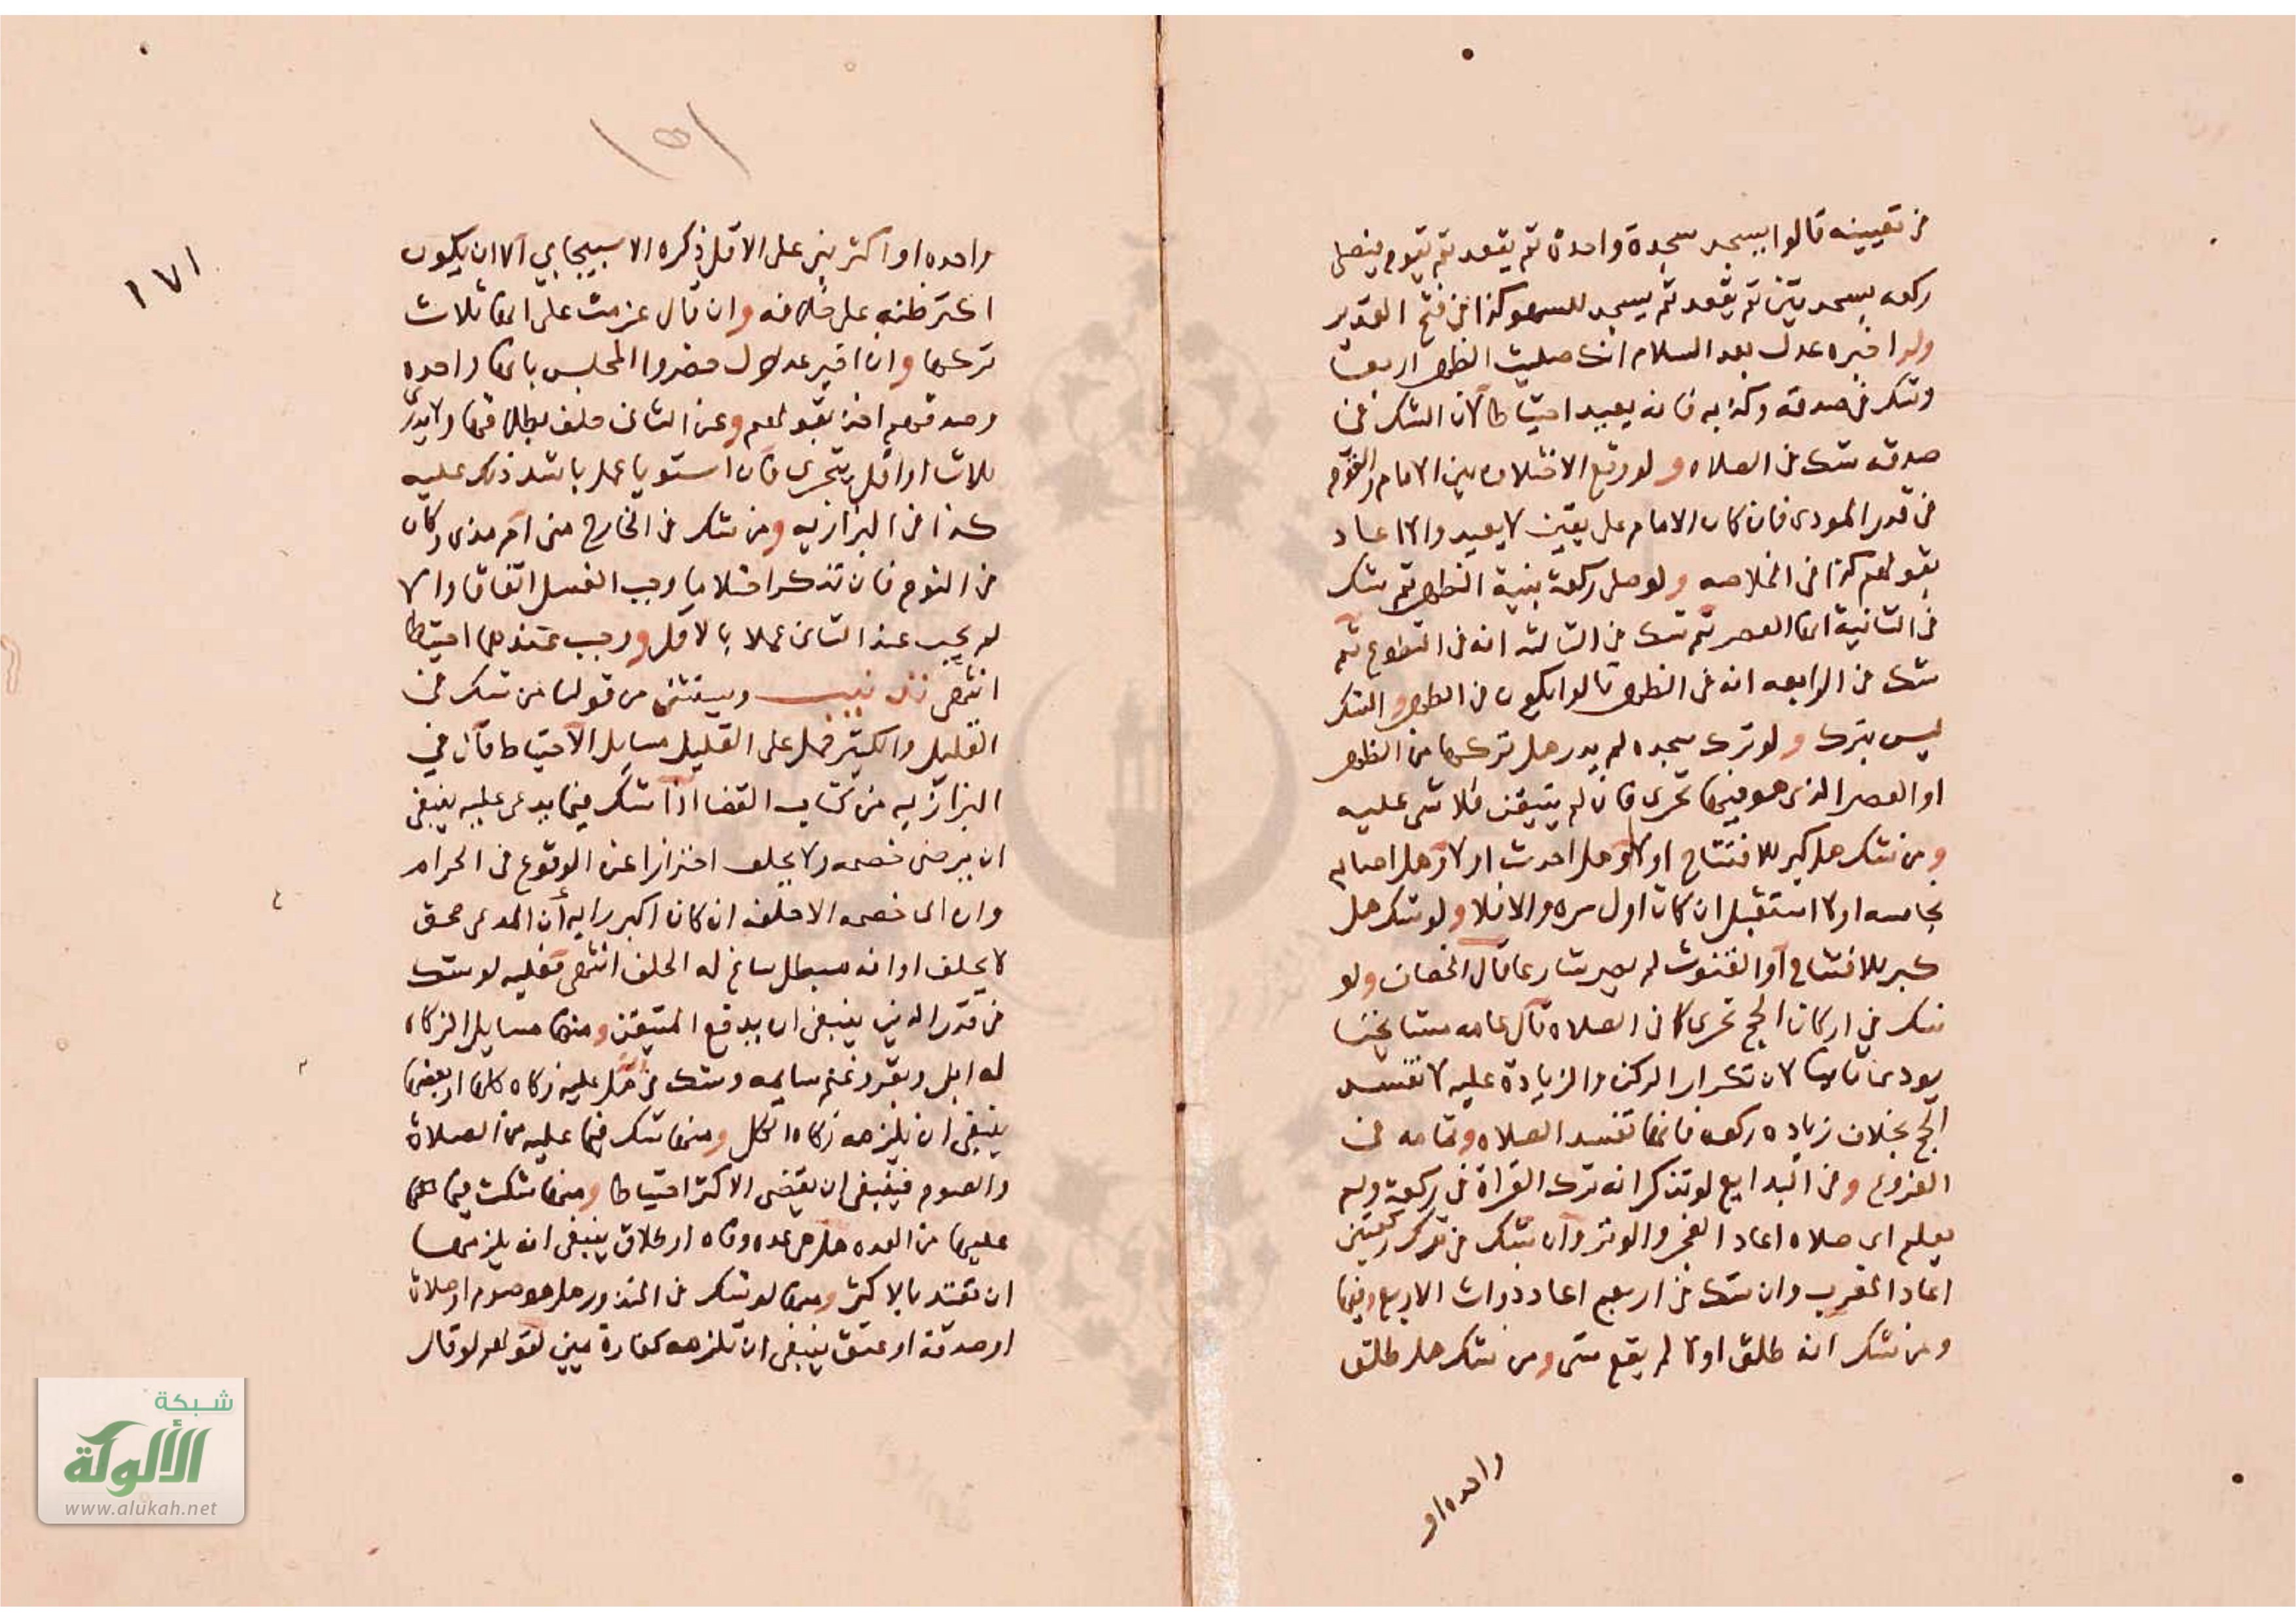 في تعيينه قالوا يسجد سجدة واحدة ثم يقعد ثم يقوم فيصلي
ركعه بسجدتين ثم يقعد ثم يسجد للسهو كذا في فتح القدير
ولو اخبره عدل بعد السلام انك صليت الظهر اربعا
وشك في صدقه وكذبه فانه يعيد احتياطا لان الشك في
صدقه شك في الصلاه ولو وقع الاختلاف بين الامام والقوم
في قدر المودى فان كان الامام على يقين لا يعيد والا اعاد
بقولهم كذا في الخلاصه ولو صلى ركعة بنية الظهر ثم شك
في الثانية انها العصر ثم شك في الثالثه انه في التطوع ثم
شك في الرابعه انه في الظهر قالوا يكون في الظهر والشك
ليس بترك ولو ترك سجده لم يدر هل تركها من الظهر
او العصر الذي هو فيها تحرى فان لم يتيقن فلا شي عليه
ومن شك هل كبر للافتتاح او لا وهل احدث او لا وهل اصابه
نجاسه او لا استقبل ان كان اول مره والا فلا ولو شك هل
كبر للافتتاح او القنوت لم يصر شارعا قال الخصاف ولو
شك في اركان الحج تحرى كما في الصلاه قال عامه مشايخنا
يودى ثانيا لان تكرار الركن والزيادة عليه لا تفسد
الحج بخلاف زياده ركعه فانها تفسد الصلاه وتمامه في
الفروع وفي البدايع لو تذكر انه ترك القراة في ركعة ولم
يعلم اي صلاه اعاد الفجر والوتر وان شك في ترك ركعتين
اعاد المغرب وان شك في اربع اعاد ذوات الاربع ومنها
ومن شك انه طلق او لا لم يقع شي ومن شك هل طلق
واحده او
١٧١
١٥١
واحده او اكثر بنى على الاقل ذكره الاسبيجابي الا ان يكون
اكثر ظنه على خلافه وان قال عزمت على انها ثلاث
تركها وان اخبر عدول حضروا المجلس بانها واحده
وصدقهم اخذ بقولهم وعن الثاني حلف بطلاقها ولا يدري
ثلاثا او اقل يتحرى فان استويا عمل باشد ذلك عليه
كذا في البزازيه ومن شك في الخارج منى ام مذى وكان
في النوم فان تذكر احتلاما وجب الغسل اتفاقا والا
لم يجب عند الثاني عملا بالاقل ووجب عندهما احتياطا
انتهى تذنيب ويستثنى من قولنا من شك في
القليل والكثير حمل على القليل مسايل الاحتياط فان في
البزازيه من كتاب القضا اذا شك فيما يدعى عليه ينبغي
ان يرضى خصمه ولا يحلف احترازا عن الوقوع في الحرام
وان ابى خصمه الا حلفه ان كان اكبر رايه أن المدعى محق
لا يحلف او انه مبطل ساغ له الحلف انتهى فعليه لو شك
في قدر الدين ينبغي ان يدفع المتيقن ومنها مسايل الزكاه
له ابل وبقر وغنم سايمه وشك في ان عليه زكاه كلها او بعضها
ينبغي ان يلزمه زكاه الكل ومنها شك فيما عليه من الصلاة
والصوم فينبغي ان يقضى الاكثر احتياطا ومنها شكت فيما
عليها من العده هل هي عده وفاه او طلاق ينبغي ان يلزمها
ان تعتد بالاكثر ومنها لو شك في المنذور هل هو صوم او صلاة
او صدقة او عتق ينبغي ان تلزمه كفارة يمين لقولهم لو قال
شبكة
الألوكة
www.alukah.net